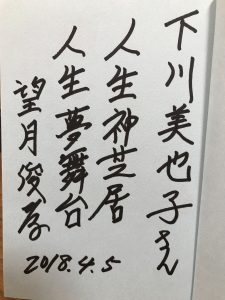 下川美也子さん
人生神芝居
人生夢舞台
望月俊孝
2018.4.5